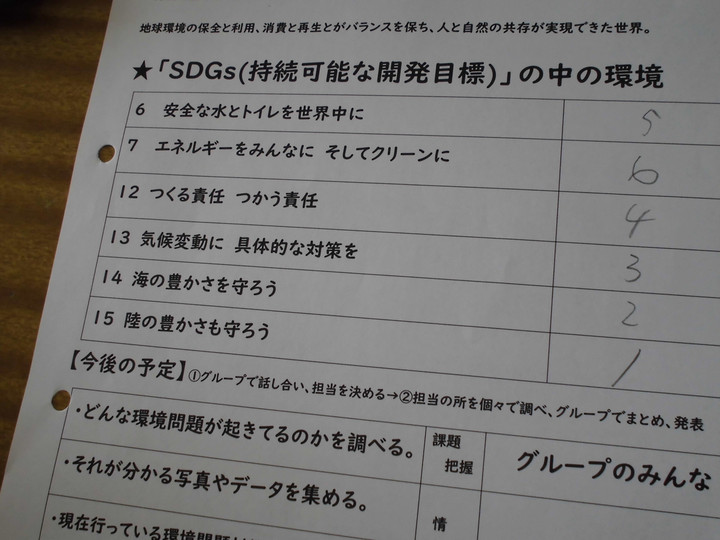 地球環境の保全と利用、消費と再生とがバランスを保ち、人と自然の共存が実現できた世界。
★「SDGs(持続可能な開発目標)」の中の環境
6 安全な水とトイレを世界中に 5
7 エネルギーをみんなに そしてクリーンに 6
12 つくる責任 つかう責任 4
13 気候変動に 具体的な対策を 3
14 海の豊かさを守ろう 2
15 陸の豊かさも守ろう 1
【今後の予定】①グループで話し合い、担当を決める→②担当の所を個々で調べ、グループでまとめ、発表
・どんな環境問題が起きてるのかを調べる。 課題
把握 グループのみんな
・それが分かる写真やデータを集める。
情
・現在行っている環境問題